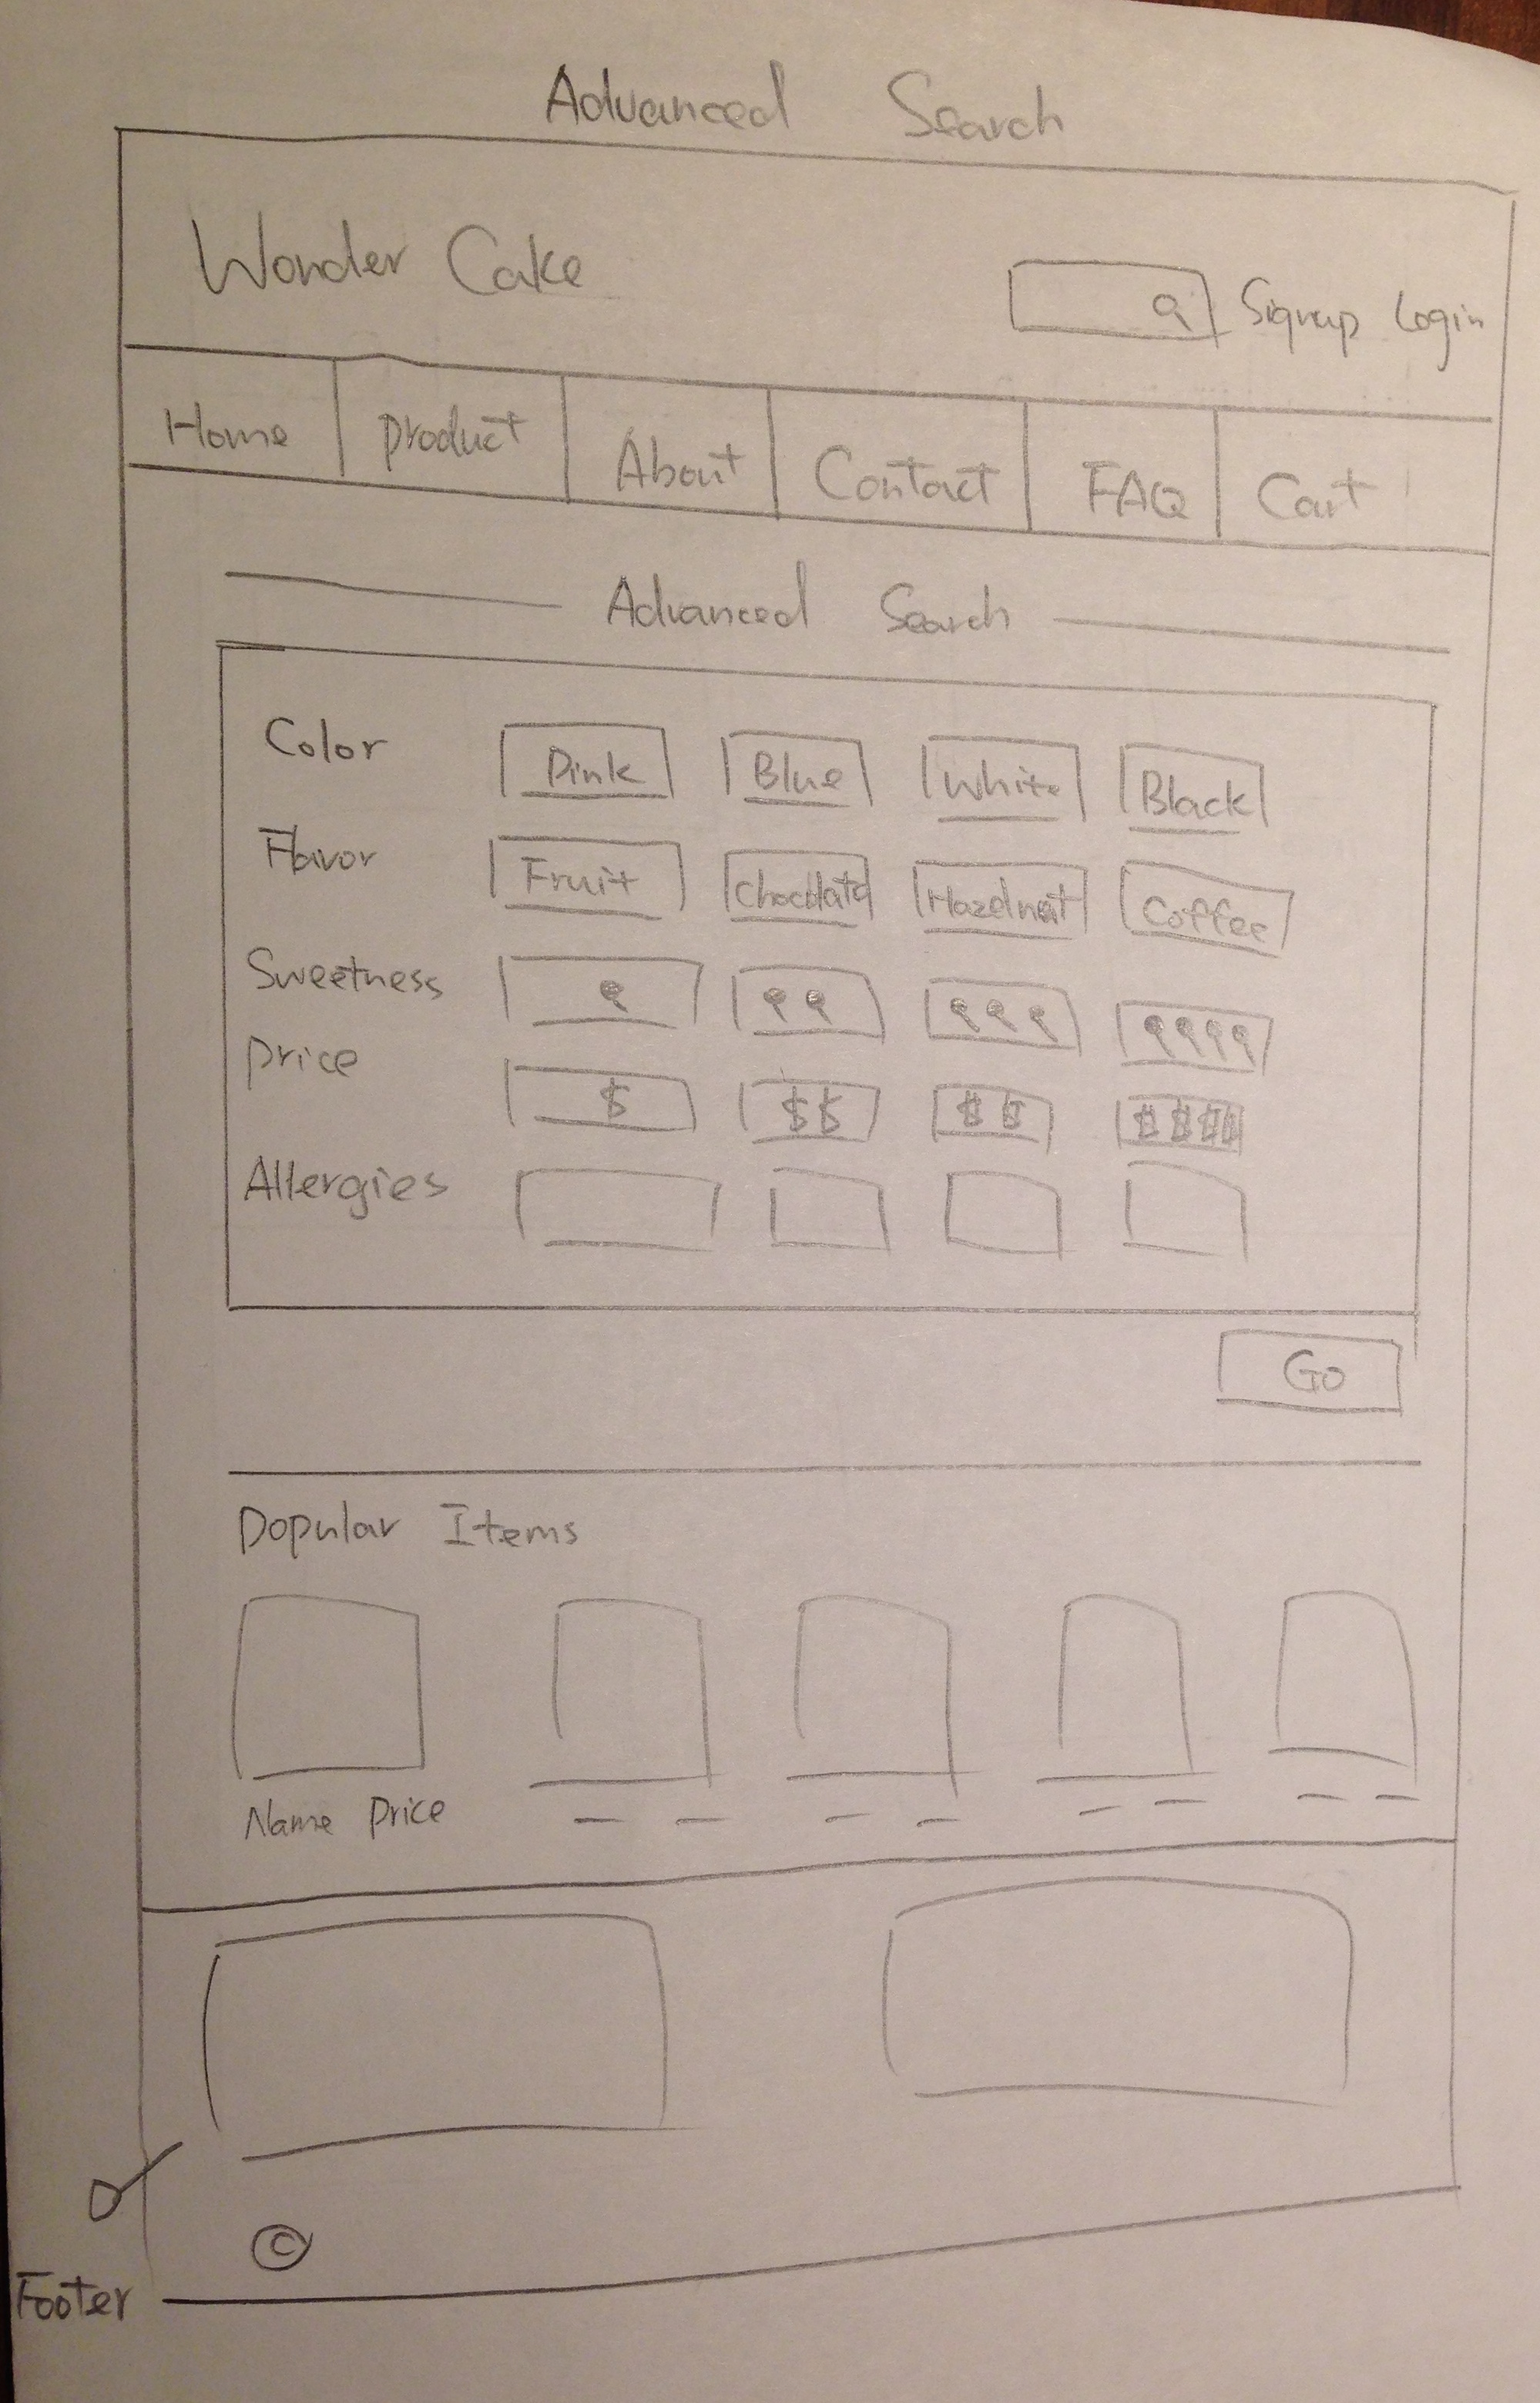 Advanced Search
Wonder Cake
Signup Login
Home Product About Contact FAQ Cart
Advanced Search
Color Pink Blue White Black
Flavor Fruit Chocolate Hazelnut Coffee
Sweetness
Price $ $$ $$ $$$$
Allergies
Go
Popular Items
Name Price
©
Footer